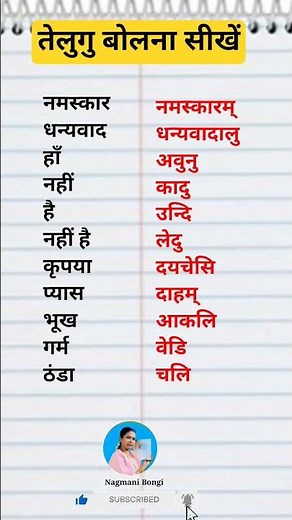 तेलुगु बोलना सीखें
नमस्कार नमस्कारम्
धन्यवाद धन्यवादालु
हाँ अवुनु
नहीं कादु
है उन्दि
नहीं है लेदु
कृपया दयचेसि
प्यास दाहम्
भूख आकलि
गर्म वेडि
ठंडा चलि
Nagmani Bongi
SUBSCRIBED